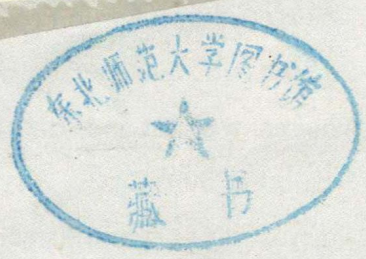 东北师范大学图书馆
藏书